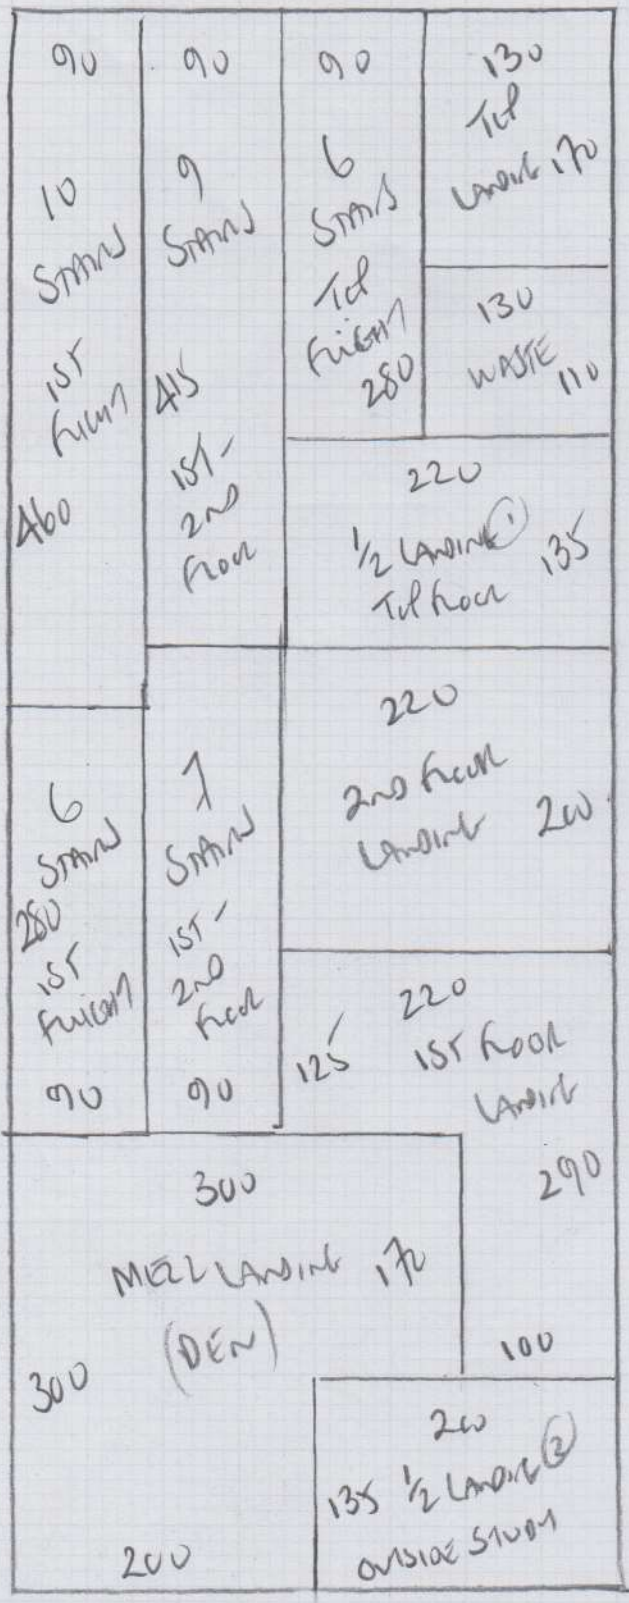 90
10
STAIRS
1ST
FLIGHT
460
90
9
STAIRS
415
1ST-
2ND
FLOOR
90
6
STAIRS
TOP
FLIGHT
280
130
TOP
LANDING 170
130
WASTE 110
220
1/2 LANDING 1
135
TOP FLOOR
220
2ND FLOOR
LANDING 200
6
STAIRS
280
1ST
FLIGHT
90
7
STAIRS
1ST-
2ND
FLOOR
90
220
125 1ST FLOOR
LANDING
290
100
300
MEZZ LANDING 170
(DEN)
300
200
200
135 1/2 LANDING 2
OUTSIDE STUDY